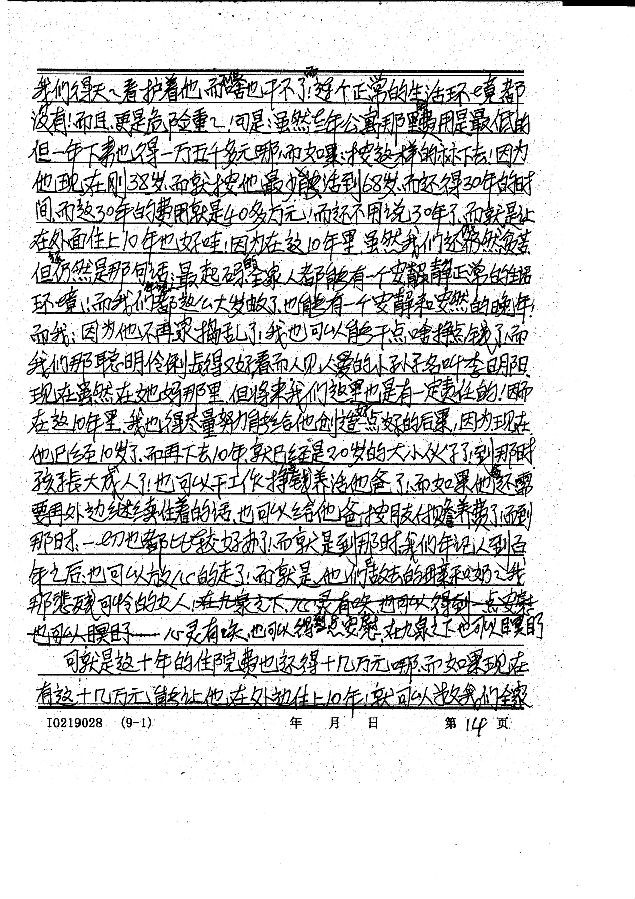 我们得天天看护着他,而啥也干不了,而连个正常的生活环境都
没有!而且,更是危险重重!可是:虽然老年公寓那里费用是最低的
但一年下来也得一万五千多元哪,而如果:按这样的标下去!因为
他现在刚38岁,而就按他最少能活到68岁,而还得30年的时
间,而这30年的费用就是40多万元!而还不用说,30年了,而就是让
在外面住上10年也好哇,因为在这10年里,虽然我们还仍然负苦
但仍然是那句话:最起码的全家人都能有一个安静正常的生活
环境!而我们都这么大岁数了,也能有一个安静和安然的晚年!
而我:因为他不再来捣乱了,我也可以能干点啥挣点钱了,而
我们那聪明伶俐长得又好看而人见人爱的小孙子名叫李明阳
现在虽然在她妈那里,但将来我们这里也是有一定责任的!因而
在这10年里,我也得尽量努力能给他创造点好的后果,因为现在
他已经10岁了,而再下去10年,就已经是20岁的大小伙子了!到那时
孩子长大成人了!也可以干工作挣钱养活他爸了,而如果他还需
要再外边继续住着的话,也可以给他爸按月支付赡养费了,而到
那时,一切也都比较好办了!而就是到那时,我们年记人到百
年之后,也可以放心的走了!而就是他们故去的母亲和奶奶,我
那悲残可怜的女人!在九泉之下,心灵有唤,也可以得到一点安慰
也可以瞑目 心灵有唤,也可以得到点安慰,在九泉之下也可以瞑目
可就是这十年的住院费也还得十几万元哪,而如果现在
有这十几万元,能让他,在外边住上10年!就可以救我们全家
I0219028 (9-1) 年 月 日 第 14 页